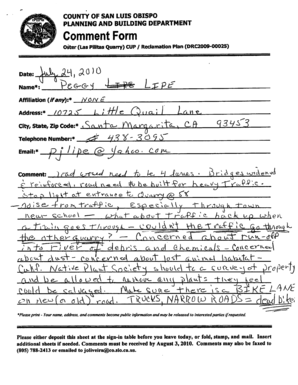 COUNTY OF SAN LUIS OBISPO
PLANNING AND BUILDING DEPARTMENT
Comment Form
Oster (Las Pilitas Quarry) CUP / Reclamation Plan (DRC2009-00025)
Date: July 24, 2010
Name*: Peggy LIPE
Affiliation (if any):* NONE
Address:* 10725 Little Quail Lane
City, State, Zip Code:* Santa Margarita, CA 93453
Telephone Number:* 438-3095
Email:* pjlipe@yahoo.com
Comment: road would need to be 4 lanes. Bridges widened
& reinforced, road need to be built for heavy Traffic.
Stop light at entrance to Quarry @ 58
- noise from traffic, Especially Through town
near school - what about Traffic back up when
a Train goes Through - couldn't the Traffic go through
the other quarry? - Concerned about run-off
into river of debris and chemicals - Concerned
about dust - concerned about lost animal habitat -
Calif. Native Plant Society should to a survey of property
and be allowed to remove any plants they feel
could be salvaged. Make sure there is a BIKE LANE
on new (& old) road. TRUCKS, NARROW ROADS = dead bikers
*Please print - Your name, address, and comments become public information and may be released to interested parties if requested.
Please either deposit this sheet at the sign-in table before you leave today, or fold, stamp, and mail. Insert
additional sheets if needed. Comments must be received by August 3, 2010. Comments may also be faxed to
(805) 788-2413 or emailed to joliveira@co.slo.ca.us.